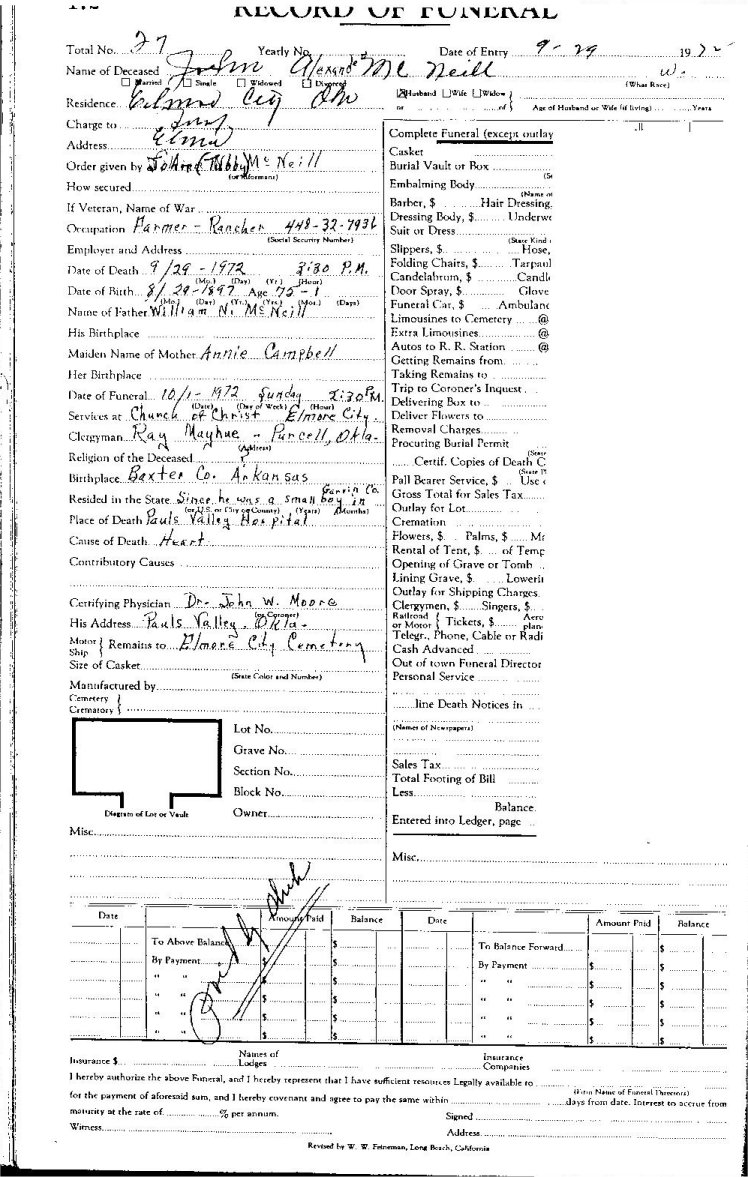 RECORD OF FUNERAL
Total No. 27 Yearly No. Date of Entry 9 - 29 1972
Name of Deceased John Alexander Mc Neill W. (What Race)
Married Single Widowed Divorced Husband Wife Widow
Residence Elmore City Okla or of Age of Husband or Wife (if living) Years
Charge to
Address Elma
Order given by (Tubby) Mc Neill
(or Informant)
How secured
If Veteran, Name of War
Occupation Farmer - Rancher 448-32-7936
(Social Security Number)
Employer and Address
Date of Death 9/29 - 1972 3:30 P.M.
(Mo.) (Day) (Yr.) (Hour)
Date of Birth 8/29-1897 Age 75-1
(Mo.) (Day) (Yr.) (Yrs.) (Mos.) (Days)
Name of Father William N. Mc Neill
His Birthplace
Maiden Name of Mother Annie Campbell
Her Birthplace
Date of Funeral 10/1- 1972 Sunday 2:30 P.M.
(Date) (Day of Week) (Hour)
Services at Church of Christ Elmore City
Clergyman Ray Mayhue - Purcell, Okla-
(Address)
Religion of the Deceased
Birthplace Baxter Co. Arkansas
Resided in the State Since he was a small boy in Garvin Co.
(or U.S. or City or County) (Years) (Months)
Place of Death Pauls Valley Hospital
Cause of Death Heart
Contributory Causes
Certifying Physician Dr. John W. Moore
(or Coroner)
His Address Pauls Valley, Okla-
Motor Ship } Remains to Elmore City Cemetery
Size of Casket
(State Color and Number)
Manufactured by
Cemetery Crematory }
Lot No.
Grave No.
Section No.
Block No.
Diagram of Lot or Vault Owner
Misc.
Complete Funeral (except outlay
Casket
Burial Vault or Box
Embalming Body
(Name of
Barber, $ Hair Dressing,
Dressing Body, $ Underwe
Suit or Dress
(State Kind
Slippers, $ Hose,
Folding Chairs, $ Tarpaul
Candelabrum, $ Candl
Door Spray, $ Glove
Funeral Car, $ Ambulanc
Limousines to Cemetery @
Extra Limousines @
Autos to R. R. Station @
Getting Remains from
Taking Remains to
Trip to Coroner's Inquest
Delivering Box to
Deliver Flowers to
Removal Charges
Procuring Burial Permit
(State
Certif. Copies of Death C
(State
Pall Bearer Service, $ Use
Gross Total for Sales Tax
Outlay for Lot
Cremation
Flowers, $ Palms, $
Rental of Tent, $ of Temp
Opening of Grave or Tomb
Lining Grave, $ Lowerin
Outlay for Shipping Charges
Clergymen, $ Singers, $
Railroad or Motor { Tickets, $ Aero plane
Telegr., Phone, Cable or Radi
Cash Advanced
Out of town Funeral Director
Personal Service
line Death Notices in
(Names of Newspapers)
Sales Tax
Total Footing of Bill
Less
Balance
Entered into Ledger, page
Misc.
Date Amount Paid Balance Date Amount Paid Balance
To Above Balance $ To Balance Forward $
By Payment $ $ By Payment $ $
" " $ $ " " $ $
" " $ $ " " $ $
" " $ $ " " $ $
" " $ $ " " $ $
Insurance $ Names of Lodges Insurance Companies
I hereby authorize the above Funeral, and I hereby represent that I have sufficient resources Legally available to
(Firm Name of Funeral Directors)
for the payment of aforesaid sum, and I hereby covenant and agree to pay the same within days from date. Interest to accrue from
maturity at the rate of % per annum. Signed
Witness Address
Revised by W. W. Feineman, Long Beach, California